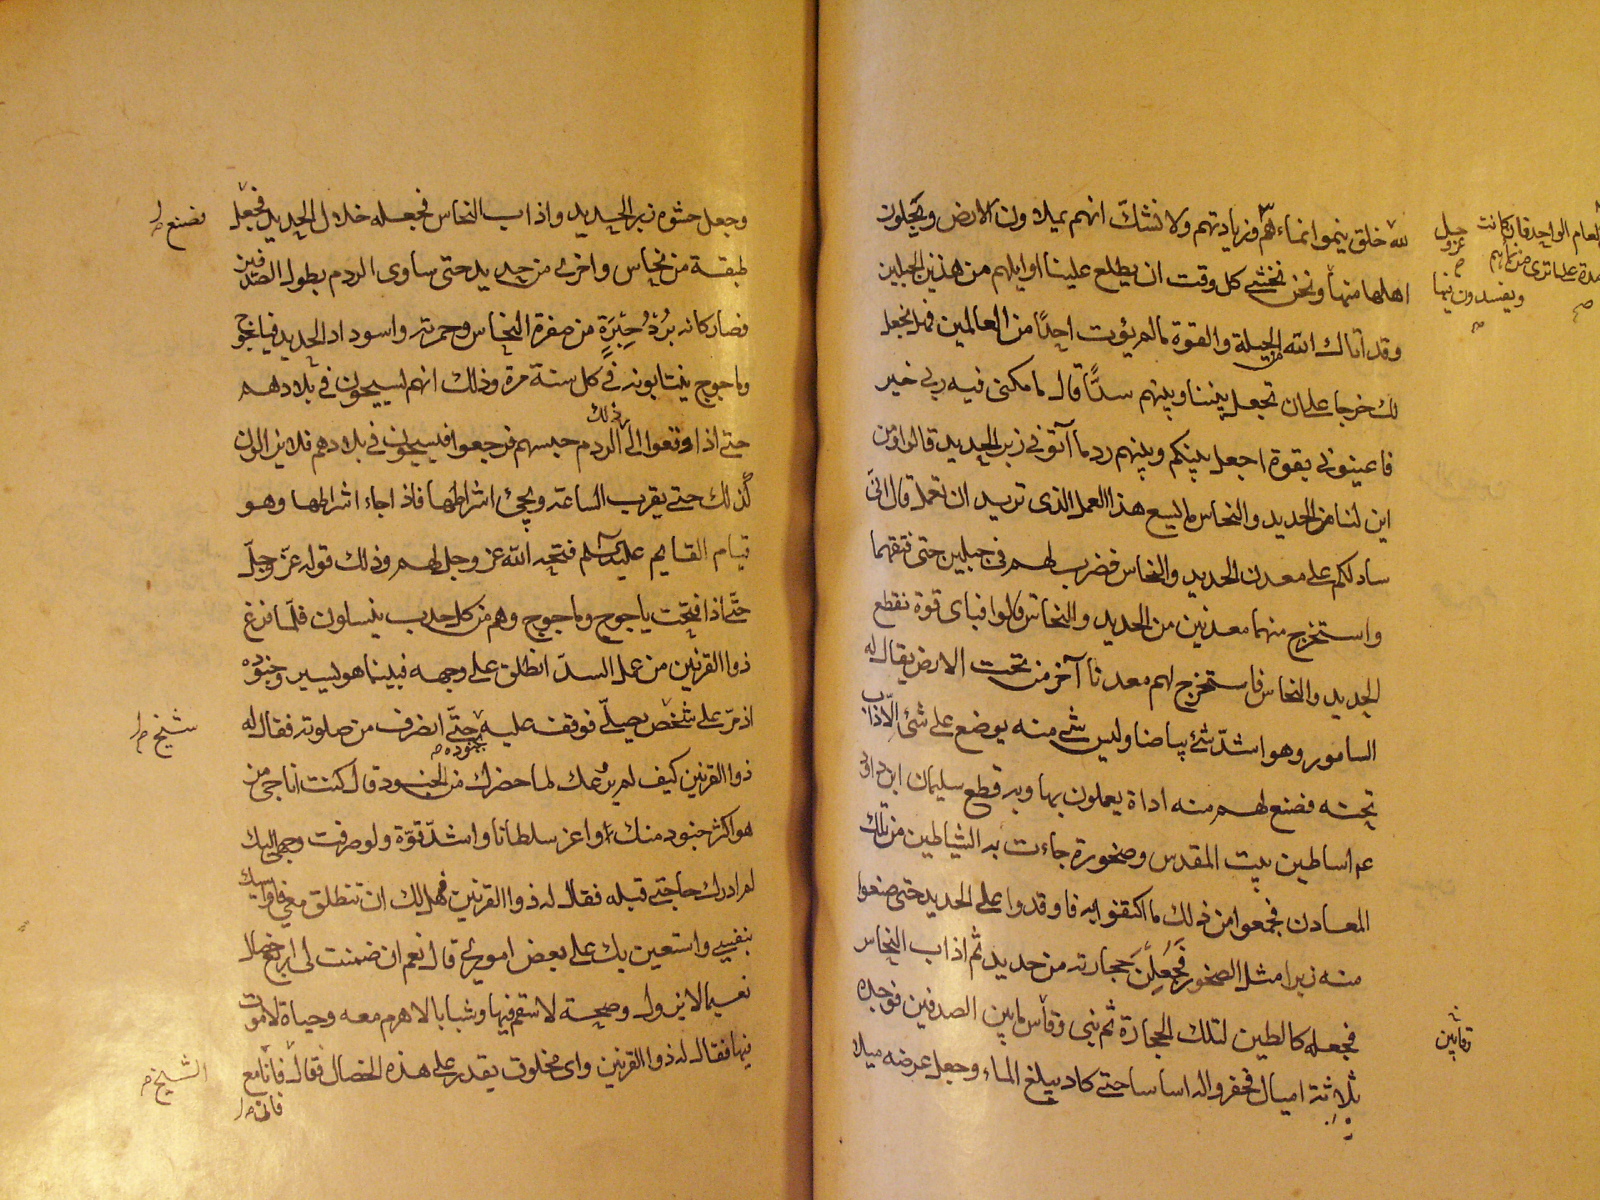 لله خلق ينموا انماءهم وزيادتهم ولا نشك انهم يملاون الارض ويجلون
اهلها منها ونحن نخشى كل وقت ان يطلع علينا اوايلهم من هذين الجبلين
وقد آتاك الله الحيلة والقوة ما لم يؤت احدا من العالمين فهل نجعل
لك خرجا على ان تجعل بيننا وبينهم سدًّا قال ما مكنى فيه ربى خير
فاعينونى بقوة اجعل بينكم وبينهم ردما آتونى زبر الحديد قالوا ومن
اين لنا من الحديد والنحاس ما يسع هذا العمل الذى تريد ان تعمل قال انّى
سادلكم على معدن الحديد والنحاس فضرب لهم فى جبلين حتى فتقهما
واستخرج منهما معدنين من الحديد والنحاس قالوا فباى قوة نقطع
الحديد والنحاس فاستخرج لهم معدنا آخر من تحت الارض يقال له
السامور وهو اشدّ شئ بياضا وليس شئ منه يوضع على شئ الّا ذاب
تحته فصنع لهم منه اداة يعملون بها وبه قطع سليمان ابن داود
عم اساطين بيت المقدس وصخوره جاءت به الشياطين من تلك
المعادن فجمعوا من ذلك ما اكتفوا به فاوقدوا على الحديد حتى صنعوا
منه زبرا مثل الصخور فجعل حجارته من حديد ثم اذاب النحاس
فجعله كالطين لتلك الحجارة ثم بنى وقاس ما بين الصدفين فوجده
ثلاثة اميال فحفر واله اساسا حتى كاد يبلغ الماء وجعل عرضه ميلا
العام الواحد فان كانت
جل عزو
مدة على ما نرى من
ويفسدون فيها
وجعل حشوه زبر الحديد واذاب النحاس فجعله خلال الحديد فجعل
طبقة من نحاس واخرى من حديد حتى ساوى الردم بطول الصدفين
فصار كانه بُرْدُ حِبَرَةٍ من صفرة النحاس وحمرته واسوداد الحديد فياجوج
وماجوج ينتابونه فى كل سنة مرة وذلك انهم يسيحون فى بلادهم
حتى اذا وقعوا الى ذلك الردم حبسهم فرجعوا فيسيحون فى بلادهم فلا يزالون
كذلك حتى يقرب الساعة ويجئ اشراطها فاذا جاء اشراطها وهو
قيام القايم عليه السلم فتحه الله عز وجل لهم وذلك قوله عزّ وجلّ
حتّى اذا فتحت ياجوج وماجوج وهم من كل حدب ينسلون فلمّا فرغ
ذوا القرنين من عمل السدّ انطلق على وجهه فبينما هو يسير وجنوده
اذ مرّ على شخص يصلّى فوقف عليه بجنوده حتّى انصرف من صلوته فقال له
ذوا القرنين كيف لم يرعك لما حضرك من الجنود قال كنت اناجى من
هو اكثر جنود منك واعز سلطانا واشدّ قوّة ولو صرفت وجهى اليك
لم ادرك حاجتى قبله فقال له ذوا القرنين فهل لك ان تنطلق معى فاواسيك
بنفسى واستعين بك على بعض امورى قال نعم ان ضمنت لى اربع خصال
نعيما لا يزول وصحة لا سقم فيها وشبابا لا هرم معه وحياة لا موت
فيها فقال له ذوا القرنين واى مخلوق يقدر على هذه الخصال فقال فانّا مع
فصنع
شيخ
الشيخ
فانى